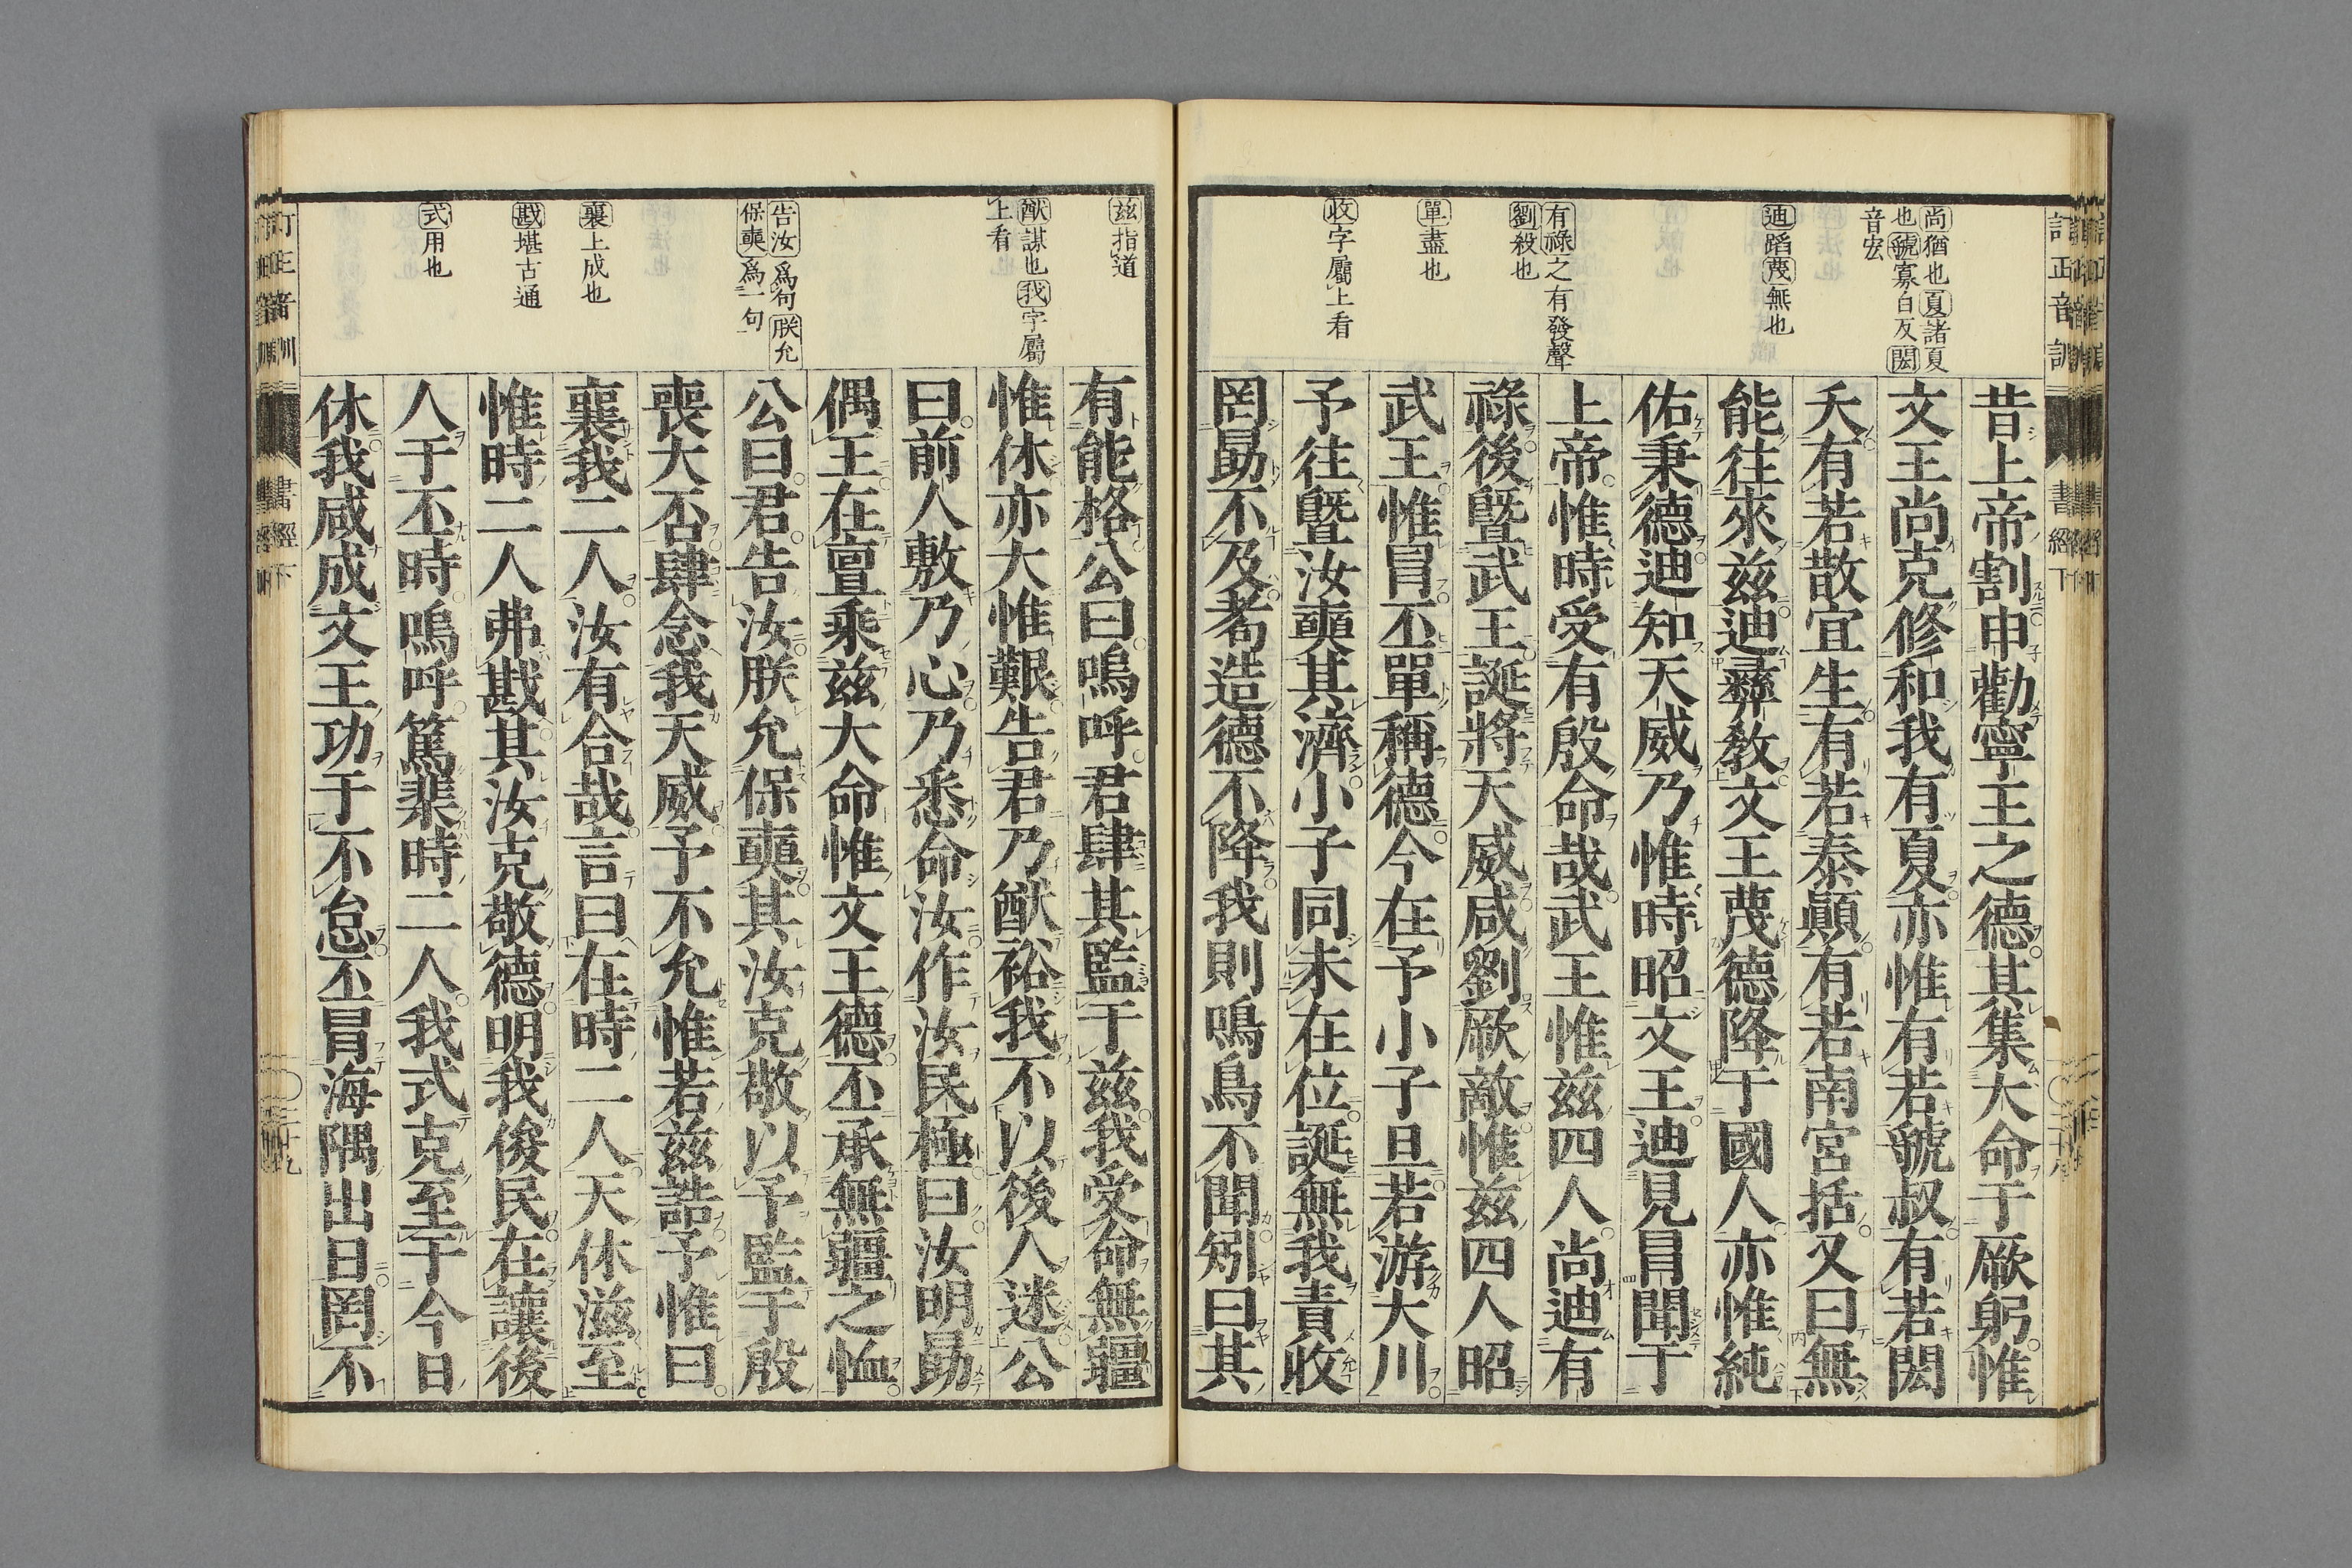 尚猶也夏諸夏
也虢寡白反閎
音宏
迪蹈蔑無也
有祿之有發聲
劉殺也
單盡也
收字屬上看
昔上帝割申勸寧王之德其集大命于厥躬惟
文王尚克修和我有夏亦惟有若虢叔有若閎
夭有若散宜生有若泰顚有若南宮括又曰無
能往來茲迪彝敎文王蔑德降于國人亦惟純
佑秉德迪知天威乃惟時昭文王迪見冒聞于
上帝惟時受有殷命哉武王惟茲四人尚迪有
祿後曁武王誕將天威咸劉厥敵惟茲四人昭
武王惟冒丕單稱德今在予小子旦若游大川
予往曁汝奭其濟小子同未在位誕無我責收
罔勗不及耇造德不降我則鳴鳥不聞矧曰其
訂正音訓
書經下
茲指道
猷謀也我字屬
上看
告汝爲句朕允
保奭爲一句
襄上成也
戡堪古通
式用也
有能格公曰嗚呼君肆其監于茲我受命無疆
惟休亦大惟艱告君乃猷裕我不以後人迷公
曰前人敷乃心乃悉命汝作汝民極曰汝明勗
偶王在亶乘茲大命惟文王德丕承無疆之恤
公曰君告汝朕允保奭其汝克敬以予監于殷
喪大否肆念我天威予不允惟若茲誥予惟曰
襄我二人汝有合哉言曰在時二人天休滋至
惟時二人弗戡其汝克敬德明我俊民在讓後
人于丕時嗚呼篤棐時二人我式克至于今日
休我咸成文王功于不怠丕冒海隅出日罔不